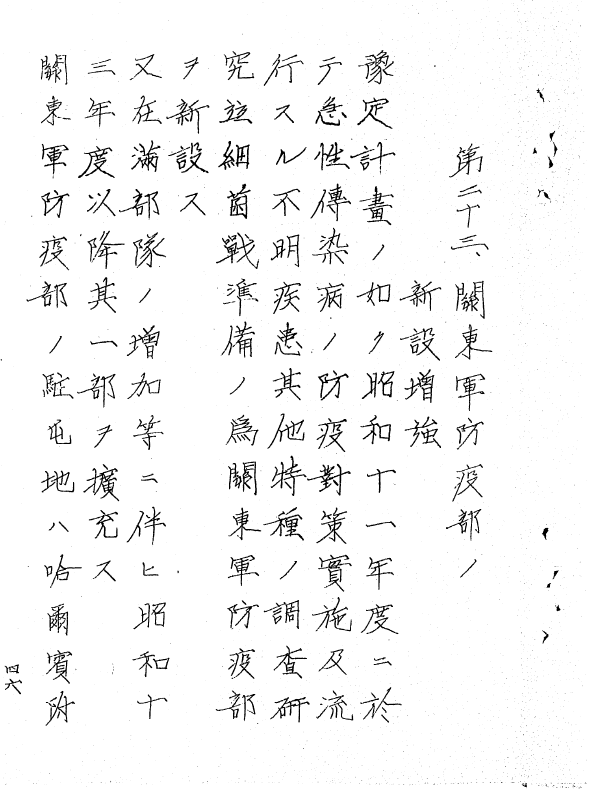 第二十三、關東軍防疫部ノ
新設增強
豫定計畫ノ如ク昭和十一年度ニ於
テ急性傳染病ノ防疫對策實施及流
行スル不明疾患其他特種ノ調查研
究竝細菌戰準備ノ爲關東軍防疫部
ヲ新設ス
又在滿部隊ノ增加等ニ伴ヒ昭和十
三年度以降其一部ヲ擴充ス
關東軍防疫部ノ駐屯地ハ哈爾賓附
四六